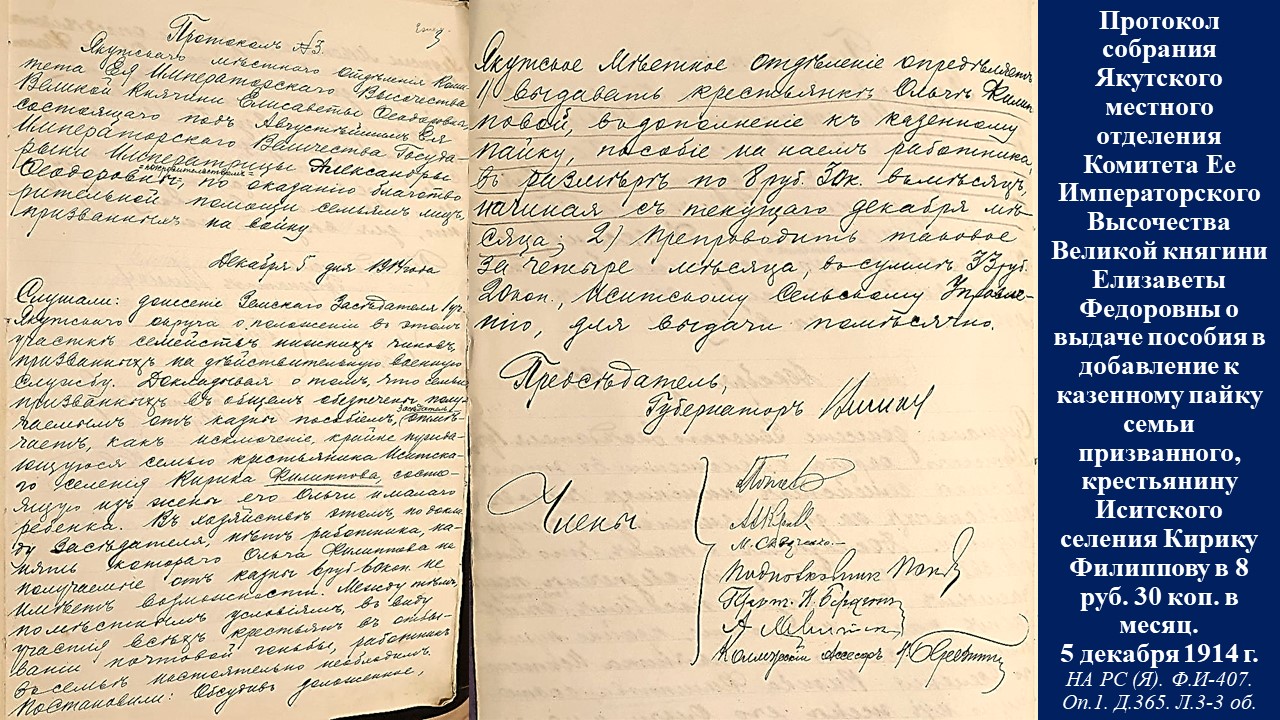 Протоколъ №3.
Якутскаго мѣстнаго отдѣленія Коми-
тета Ея Императорскаго Высочества
Великой Княгини Елисаветы Ѳеодоровны,
состоящаго подъ Августѣйшимъ Ея
Императорскаго Величества Госуда-
рыни Императрицы Александры
Ѳеодоровны покровительствомъ, по оказанію благотво-
рительной помощи семьямъ лицъ,
призванныхъ на войну
Декабря 5 дня 1914 года
Слушали: донесеніе Земскаго Засѣдателя
Якутскаго округа о положеніи въ этомъ
участкѣ семействъ нижнихъ чиновъ,
призванныхъ на дѣйствительную военную
службу. Докладывая о томъ, что семьи
призванныхъ въ общемъ обезпечены полу-
чаемымъ отъ казны пособіемъ, Засѣдатель отмѣ-
чаетъ, какъ исключеніе, крайне нужда-
ющуюся семью крестьянина Иситска-
го селенія Кирика Филиппова, состо-
ящую изъ жены его Ольги и малаго
ребенка. Въ хозяйствѣ этомъ, по докла-
ду Засѣдателя, нѣтъ работника, на-
нять котораго Ольга Филиппова на
получаемые отъ казны коп. не
имѣетъ возможности. Между тѣмъ,
по мѣстнымъ условіямъ, въ виду
участія всѣхъ крестьянъ въ отбы-
ваніи почтовой гоньбы, работникъ
въ семьѣ постоянно необходимъ.
Постановили: Обсудивъ доложенное,
3
Якутское Мѣстное отдѣленіе опредѣляетъ
1) выдавать крестьянкѣ Ольгѣ Филип-
повой, въ дополненіе къ казенному
пайку, пособіе на наемъ работника,
въ размѣрѣ по 8 руб. 30 к. въ мѣсяцъ,
начиная съ текущаго декабря мѣ-
сяца; 2) Препроводить таковое
за четыре мѣсяца, въ суммѣ 33 руб.
20 коп., Иситскому Сельскому Управле-
нію, для выдачи помѣсячно.
Предсѣдатель,
Губернаторъ
Члены
Подполковникъ Поповъ
Коллежскій Ассесоръ
Протокол
собрания
Якутского
местного
отделения
Комитета Ее
Императорского
Высочества
Великой княгини
Елизаветы
Федоровны о
выдаче пособия в
добавление к
казенному пайку
семьи
призванного,
крестьянину
Иситского
селения Кирику
Филиппову в 8
руб. 30 коп. в
месяц.
5 декабря 1914 г.
НА РС (Я). Ф.И-407.
Оп.1. Д.365. Л.3-3 об.